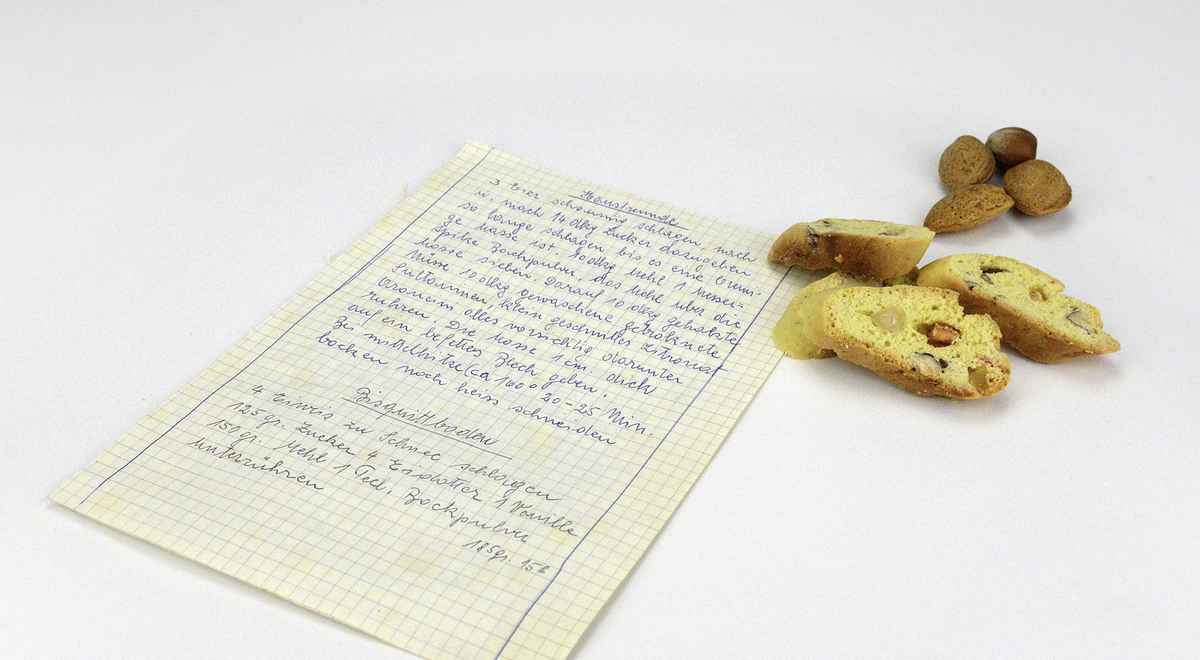 Hausfreunde
3 Eier schaumig schlagen, nach
u. nach 14 dkg Zucker dazugeben
so lange schlagen bis es eine krem-
ge Masse ist. 10 dkg Mehl 1 Messer-
spitze Backpulver, das Mehl über die
Masse sieben. Darauf 10 dkg gehakte
Nüsse 10 dkg gewaschene getroknete
Sultaninen, klein geschnittes Zitronat
Arancini alles vorsichtig darunter
rühren. Die Masse 1 cm. dick
auf ein befettes Blech geben.
Bei mittelhitze (ca 160°) 20-25 Min.
backen noch heiss schneiden
Bisquittboden
4 Eiweis zu Schnee schlagen
125 gr. Zucker 4 Eidotter 1 Vanille
150 gr. Mehl 1 Teel. Backpulver
unterrühren
185 gr. 15